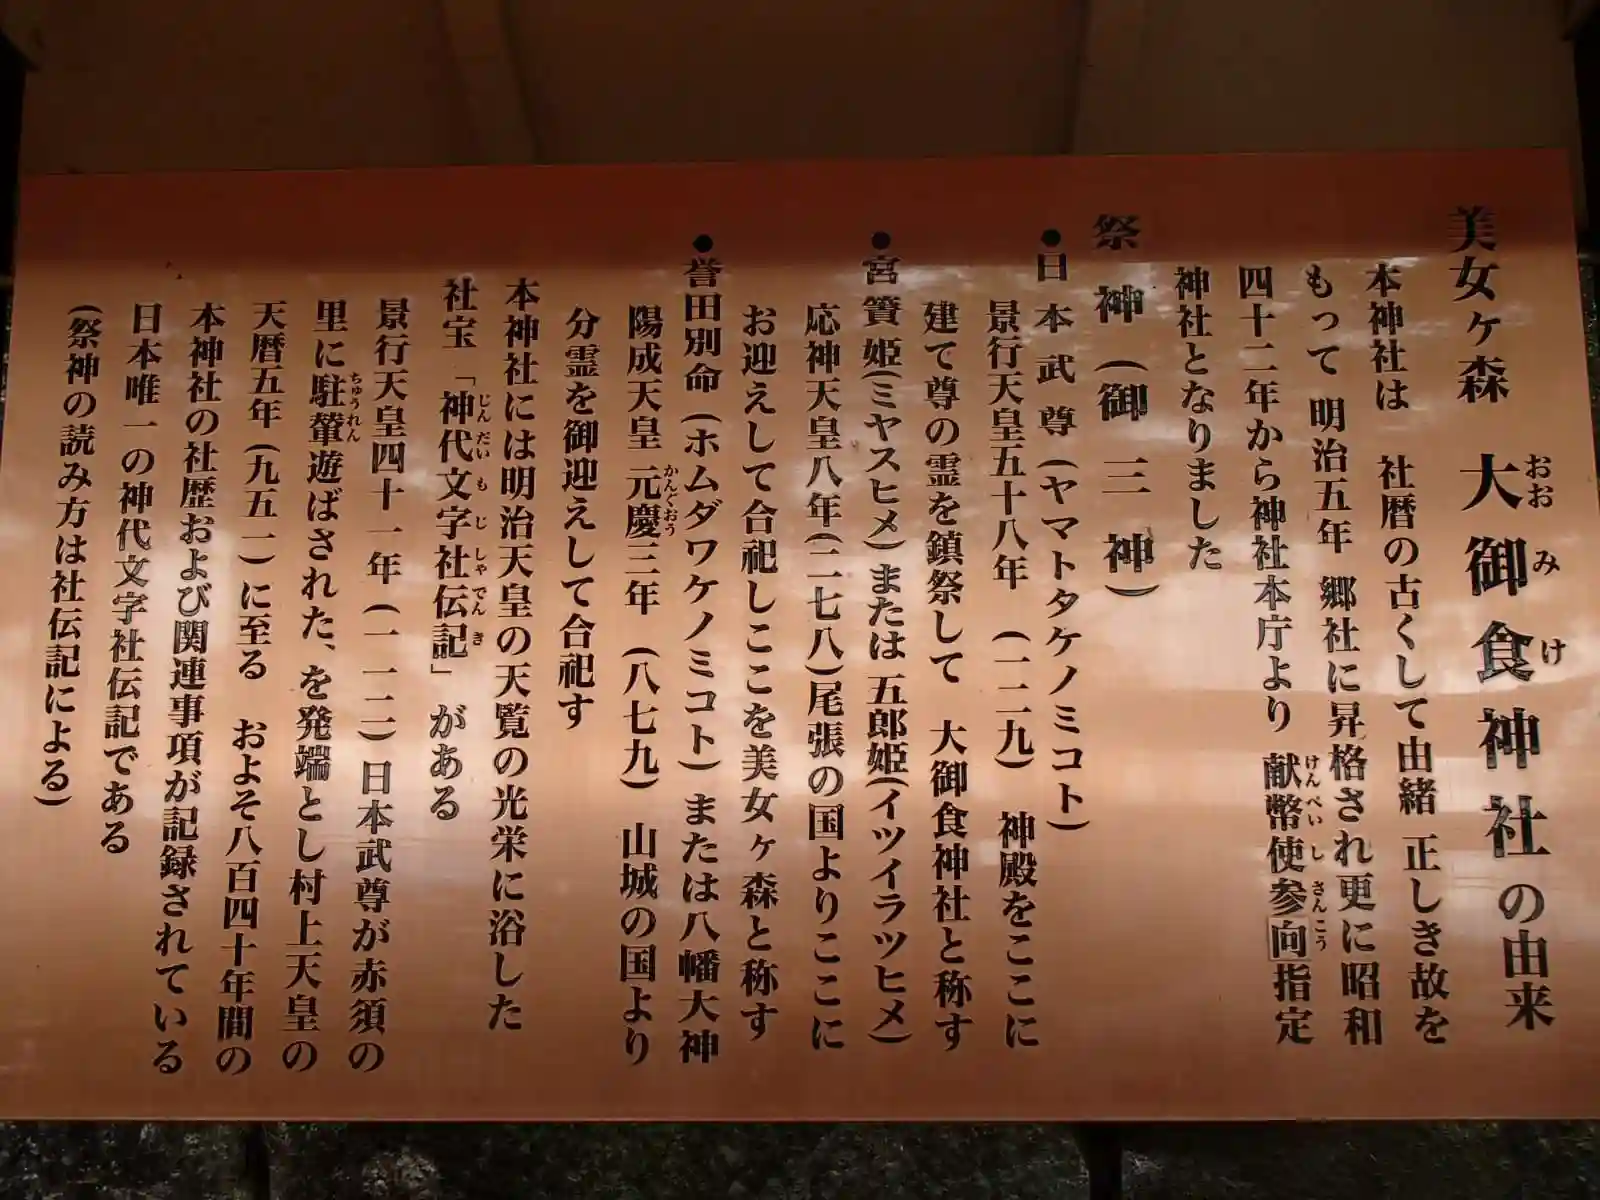 美女ヶ森 大御食神社の由来
おおみけ
本神社は 社暦の古くして由緒正しき故を
もって 明治五年 郷社に昇格され更に昭和
四十二年から神社本庁より 献幣使参向指定
けんぺいしさんこう
神社となりました
祭神(御三神)
●日本武尊(ヤマトタケノミコト)
景行天皇五十八年 (一二九) 神殿をここに
建て尊の霊を鎮祭して 大御食神社と称す
●宮簀姫(ミヤスヒメ)または五郎姫(イツイラツヒメ)
応神天皇八年(二七八)尾張の国よりここに
お迎えして合祀しここを美女ヶ森と称す
●誉田別命(ホムダワケノミコト)または八幡大神
陽成天皇 元慶三年 (八七九) 山城の国より
かんぐおう
分霊を御迎えして合祀す
本神社には明治天皇の天覧の光栄に浴した
社宝「神代文字社伝記」がある
じんだいもじしゃでんき
景行天皇四十一年(一一二)日本武尊が赤須の
里に駐輦遊ばされた、を発端とし村上天皇の
ちゅうれん
天暦五年(九五一)に至る およそ八百四十年間の
本神社の社歴および関連事項が記録されている
日本唯一の神代文字社伝記である
(祭神の読み方は社伝記による)